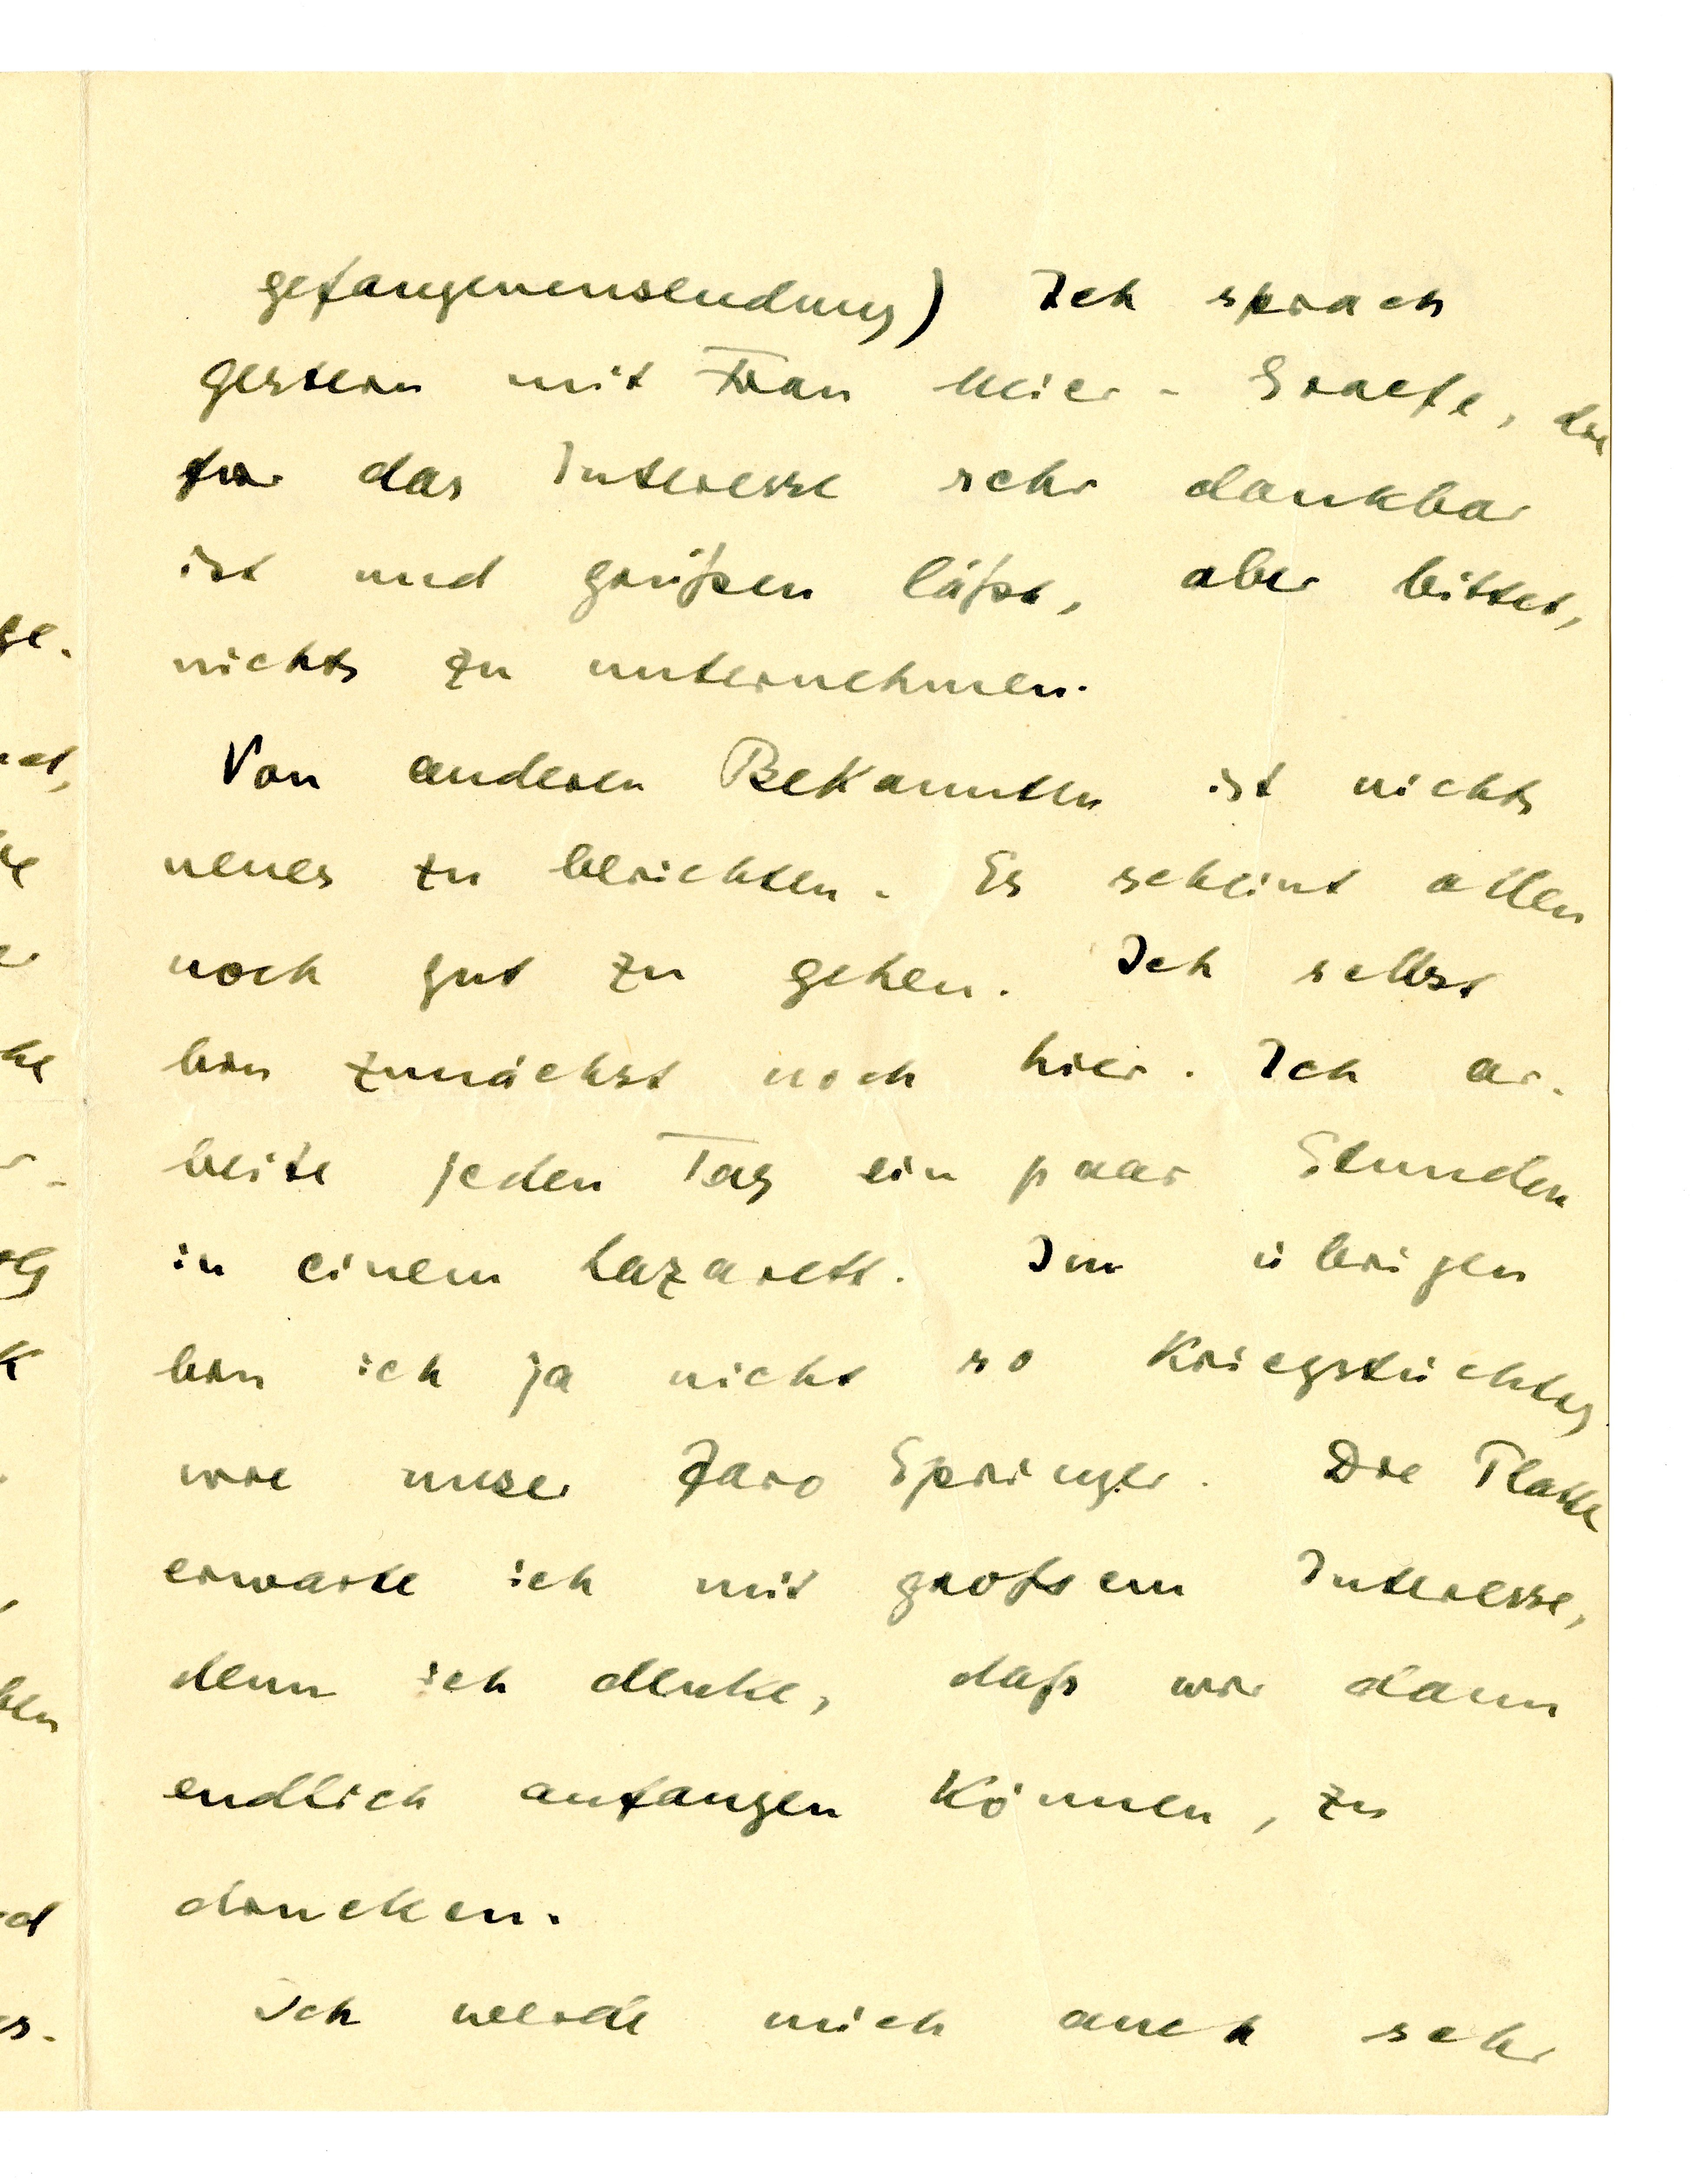 gefangenensendung) Ich sprach
gestern mit Frau Meier-Graefe, die
für das Interesse sehr dankbar
ist und grüßen läßt, aber bittet,
nichts zu unternehmen.
Von anderen Bekannten ist nichts
neues zu berichten. Es scheint allen
noch gut zu gehen. Ich selbst
bin zunächst noch hier. Ich ar-
beite jeden Tag ein paar Stunden
in einem Lazarett. Im übrigen
bin ich ja nicht so Kriegstüchtig
wie unser Jaro Springer. Die Platte
erwarte ich mit großem Interesse,
denn ich denke, daß wir dann
endlich anfangen können, zu
drucken.
Ich werde mich auch sehr